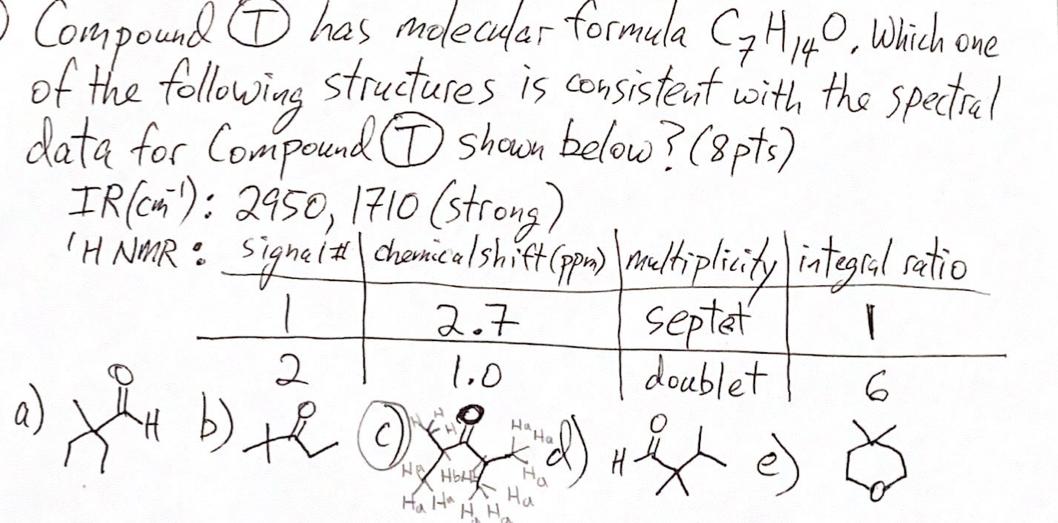 ) Compound Ⓣ has molecular formula C₇H₁₄O. Which one
of the following structures is consistent with the spectral
data for Compound Ⓣ shown below? (8pts)
IR(cm⁻¹): 2950, 1710 (strong)
¹H NMR: signal# chemical shift (ppm) multiplicity integral ratio
1 2.7 septet 1
2 1.0 doublet 6
a) O H b) O c) H H H O Ha Ha Ha Hb Hb Ha Ha Ha Ha Ha Ha d) O H e) O